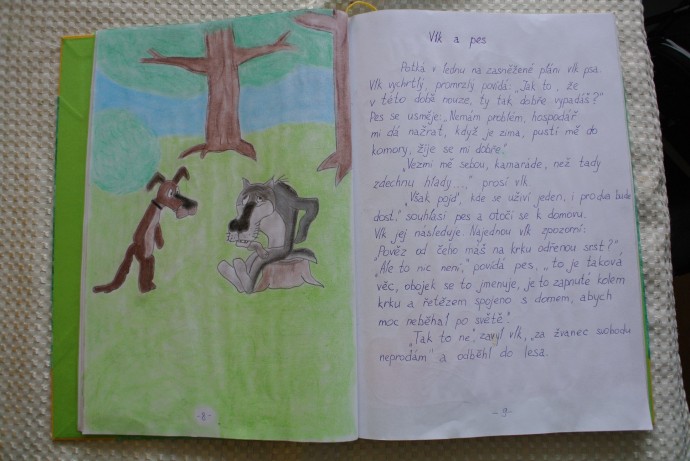 Vlk a pes
Potká v lednu na zasněžené pláni vlk psa.
Vlk vychrtlý, promrzlý povídá: „Jak to, že
v této době nouze, ty tak dobře vypadáš?"
Pes se usměje: „Nemám problém, hospodář
mi dá nažrat, když je zima, pustí mě do
komory, žije se mi dobře."
„Vezmi mě sebou, kamaráde, než tady
zdechnu hlady....," prosí vlk
„Však pojď, kde se uživí jeden, i pro dva bude
dost." souhlasí pes a otočí se k domovu.
Vlk jej následuje. Najednou vlk zpozorní:
„Pověz od čeho máš na krku odřenou srst?",
„Ale to nic není," povídá pes, „to je taková
věc, obojek se to jmenuje, je to zapnuté kolem
krku a řetězem spojeno s domem, abych
moc neběhal po světě".
„Tak to ne", zavyl vlk, „za žvanec svobodu
neprodám" a odběhl do lesa.
-8-
-9-